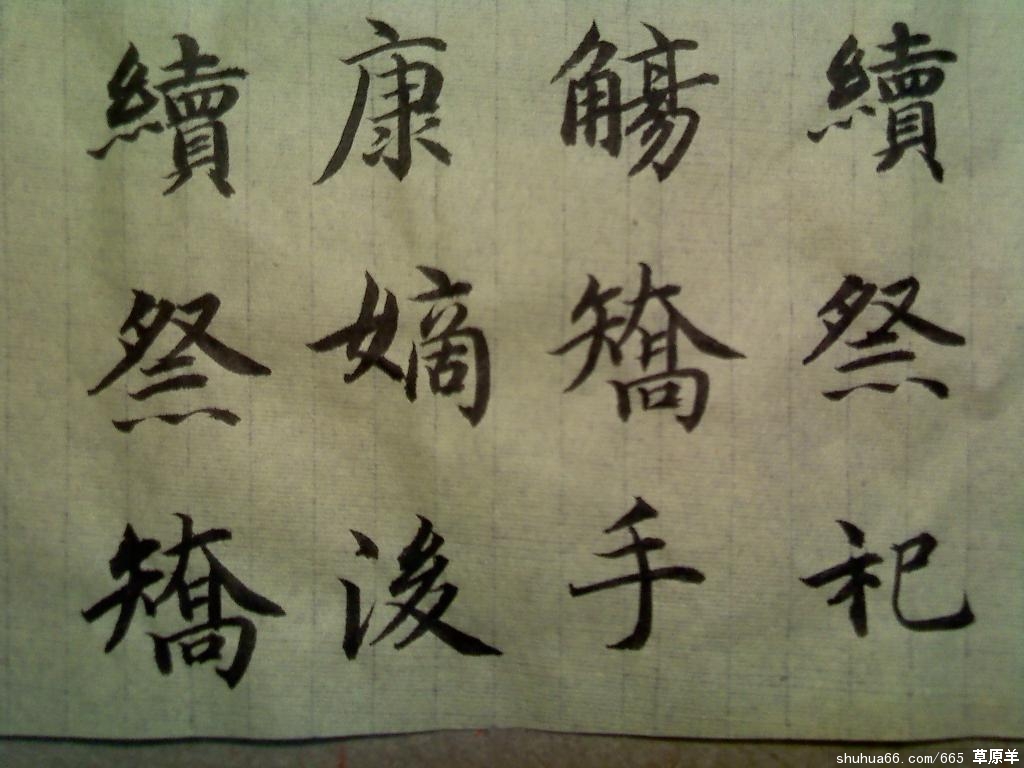 續祭祀
觴矯手
康嫡後
續祭矯
shuhua66.com/665 草原羊